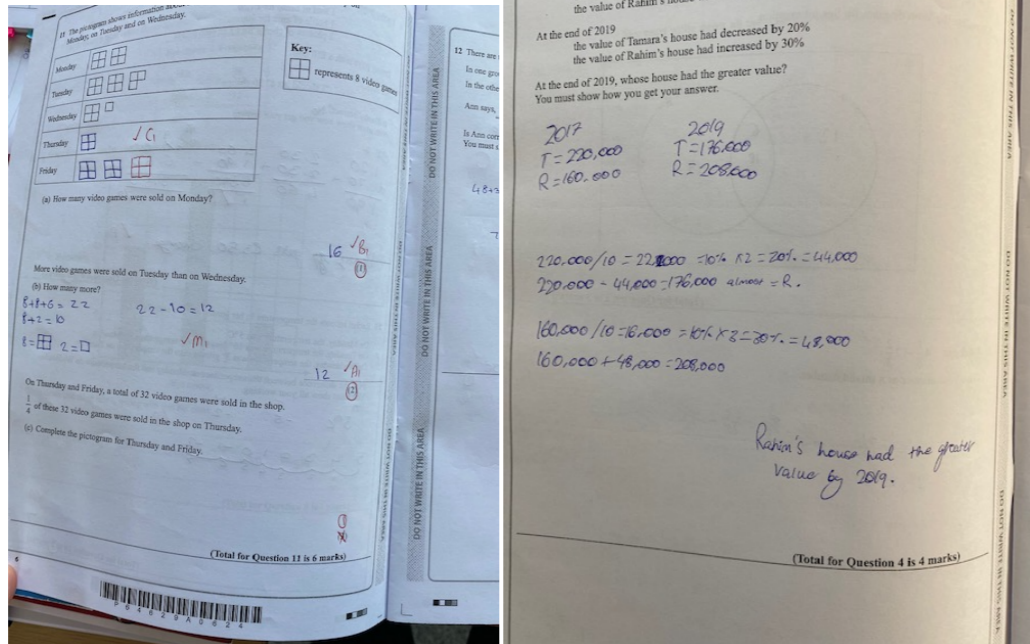 11 The pictogram shows information about
Monday, on Tuesday and on Wednesday.
Monday
Tuesday
Wednesday
Thursday
Friday
✓C1
Key:
represents 8 video games
(a) How many video games were sold on Monday?
16 ✓B1
(1)
More video games were sold on Tuesday than on Wednesday.
(b) How many more?
8+8+6=22
22-10=12
8+2=10
8= 2=
✓M1
12 ✓A1
(2)
On Thursday and Friday, a total of 32 video games were sold in the shop.
1/4 of these 32 video games were sold in the shop on Thursday.
(c) Complete the pictogram for Thursday and Friday.
(Total for Question 11 is 6 marks)
6
P54629A0624
DO NOT WRITE IN THIS AREA
DO NOT WRITE IN THIS AREA
DO NOT WRITE IN THIS AREA
12 There are
In one gro
In the othe
Ann says,
Is Ann corr
You must s
the value of Rahim's house
At the end of 2019
the value of Tamara's house had decreased by 20%
the value of Rahim's house had increased by 30%
At the end of 2019, whose house had the greater value?
You must show how you get your answer.
2017
T=220,000
R=160,000
2019
T=176,000
R=208,000
220,000/10 = 22,000 =10% x2 = 20% = 44,000
220,000 - 44,000 = 176,000 almost = R.
160,000/10=16,000 =10% x3=30% = 48,000
160,000+48,000=208,000
Rahim's house had the greater
value by 2019.
(Total for Question 4 is 4 marks)
DO NOT WRITE IN THIS AREA
DO NOT WRITE IN THIS AREA
DO NOT WRITE IN THIS AREA